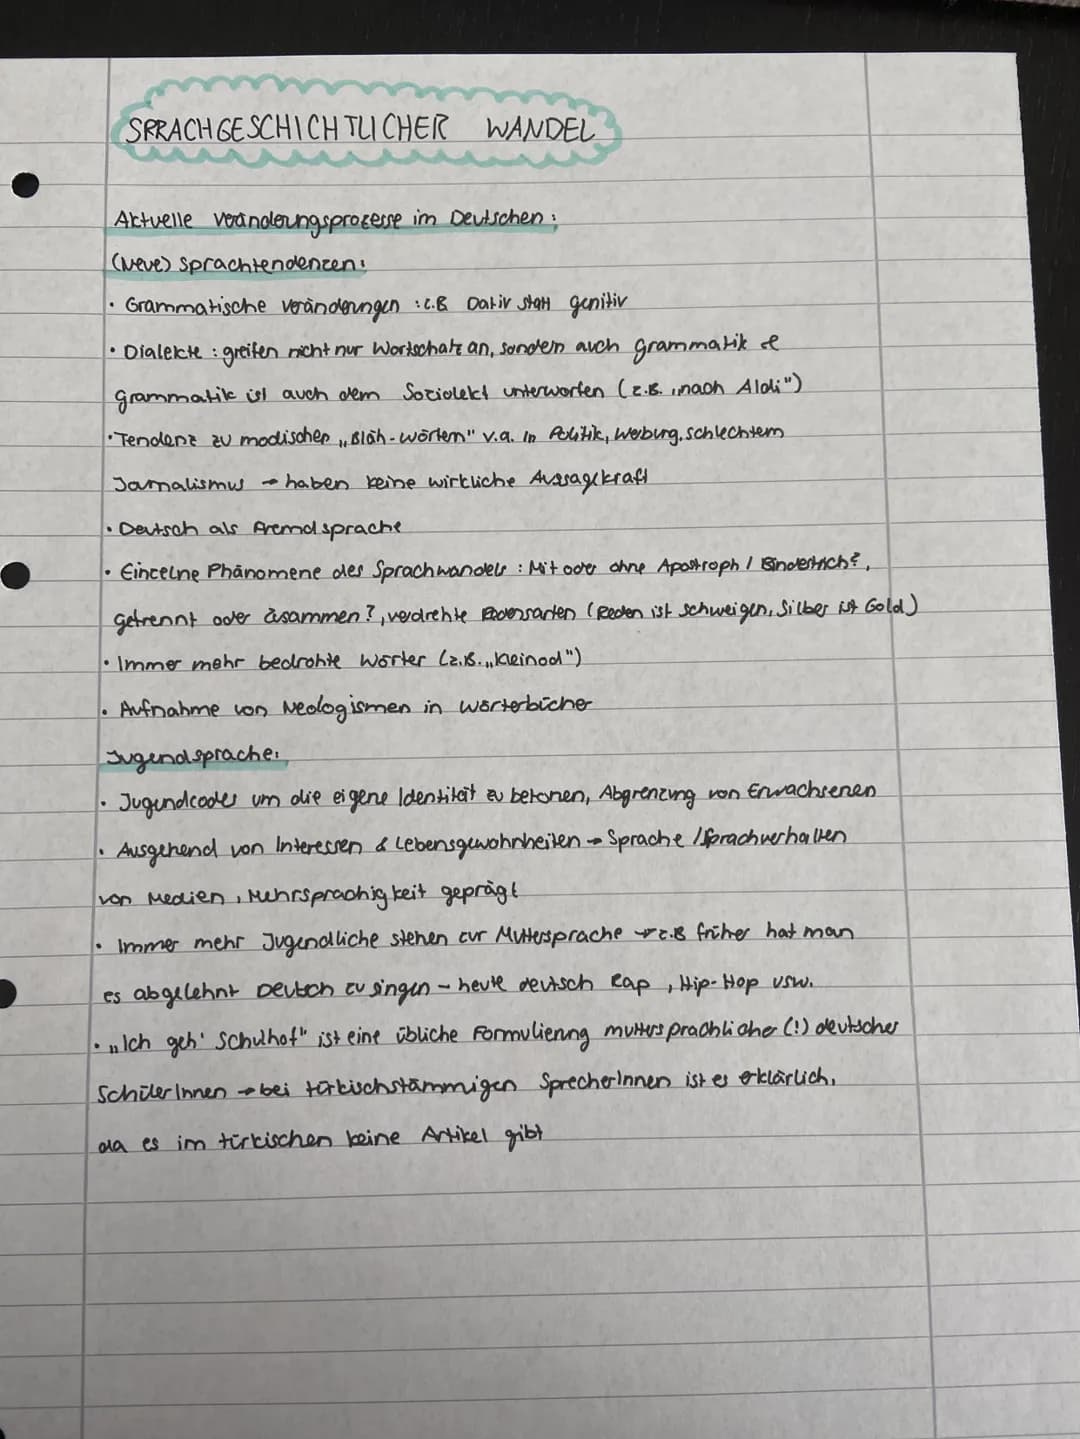 SPRACHGESCHICHTLICHER WANDEL
Aktuelle Veränderungsprozesse im Deutschen:
(Neue) Sprachtendenzen:
• Grammatische Veränderungen : z.B Dativ statt genitiv
• Dialekte : greifen nicht nur Wortschatz an, sondern auch grammatik
grammatik ist auch dem Soziolekt unterworfen (z.B. „nach Aldi")
• Tendenz zu modischen „Bläh-Wörtern" v.a. in Politik, Werbung, schlechtem
Journalismus → haben keine wirkliche Aussagekraft
• Deutsch als Fremdsprache
• Einzelne Phänomene des Sprachwandels : Mit oder ohne Apostroph / Bindestrich?,
getrennt oder zusammen?, verdrehte Redensarten (Reden ist schweigen, Silber ist Gold)
• Immer mehr bedrohte Wörter (z.B. „Kleinod")
• Aufnahme von Neologismen in Wörterbücher
Jugendsprache:
• Jugendcodes um die eigene Identität zu betonen, Abgrenzung von Erwachsenen
• Ausgehend von Interessen & Lebensgewohnheiten → Sprache / Sprachverhalten
von Medien, Mehrsprachigkeit geprägt
• Immer mehr Jugendliche stehen zur Muttersprache → z.B früher hat man
es abgelehnt Deutsch zu singen – heute deutsch Rap, Hip-Hop usw.
• „Ich geh' Schulhof" ist eine übliche Formulierung muttersprachlicher (!) deutscher
SchülerInnen → bei türkischstämmigen SprecherInnen ist es erklärlich,
da es im türkischen keine Artikel gibt